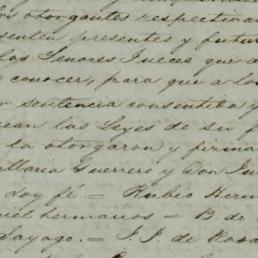 los otorgantes respectivam
senten presentes y futur
los Señores Jueces que d
conocer, para que a lo
sentencia consentida y
las Leyes de su f
lo otorgaron y firma
Maria Guerrero y Don Ju
doy fé = Rubio Herm
hermanos = B. de
Sayago. = J. J. de Rosa